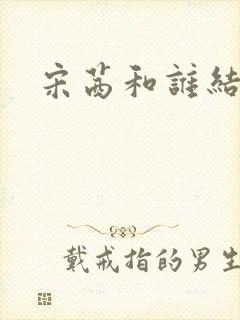 宋茜和誰結
戴戒指的男生